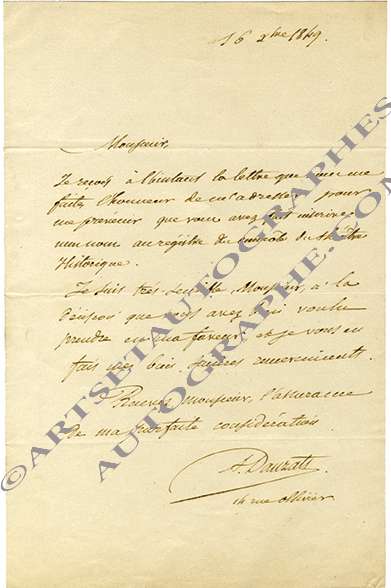 16 Xbre 1849.
Monsieur,
Je reçois à l'instant la lettre que vous me
faites l'honneur de m'adresser pour
me prévenir que vous avez fait inscrire
mon nom au registre du contrôle du théâtre
Historique.
Je suis très sensible, Monsieur, à la
que vous avez bien voulu
prendre en ma faveur, et je vous en
fais mes bien sincères remerciments.
Recevez Monsieur, l'assurance
de ma parfaite considération
A. Dauzats
14 rue Olivier.
©ARTSETAUTOGRAPHES
AUTOGRAPHE.COM